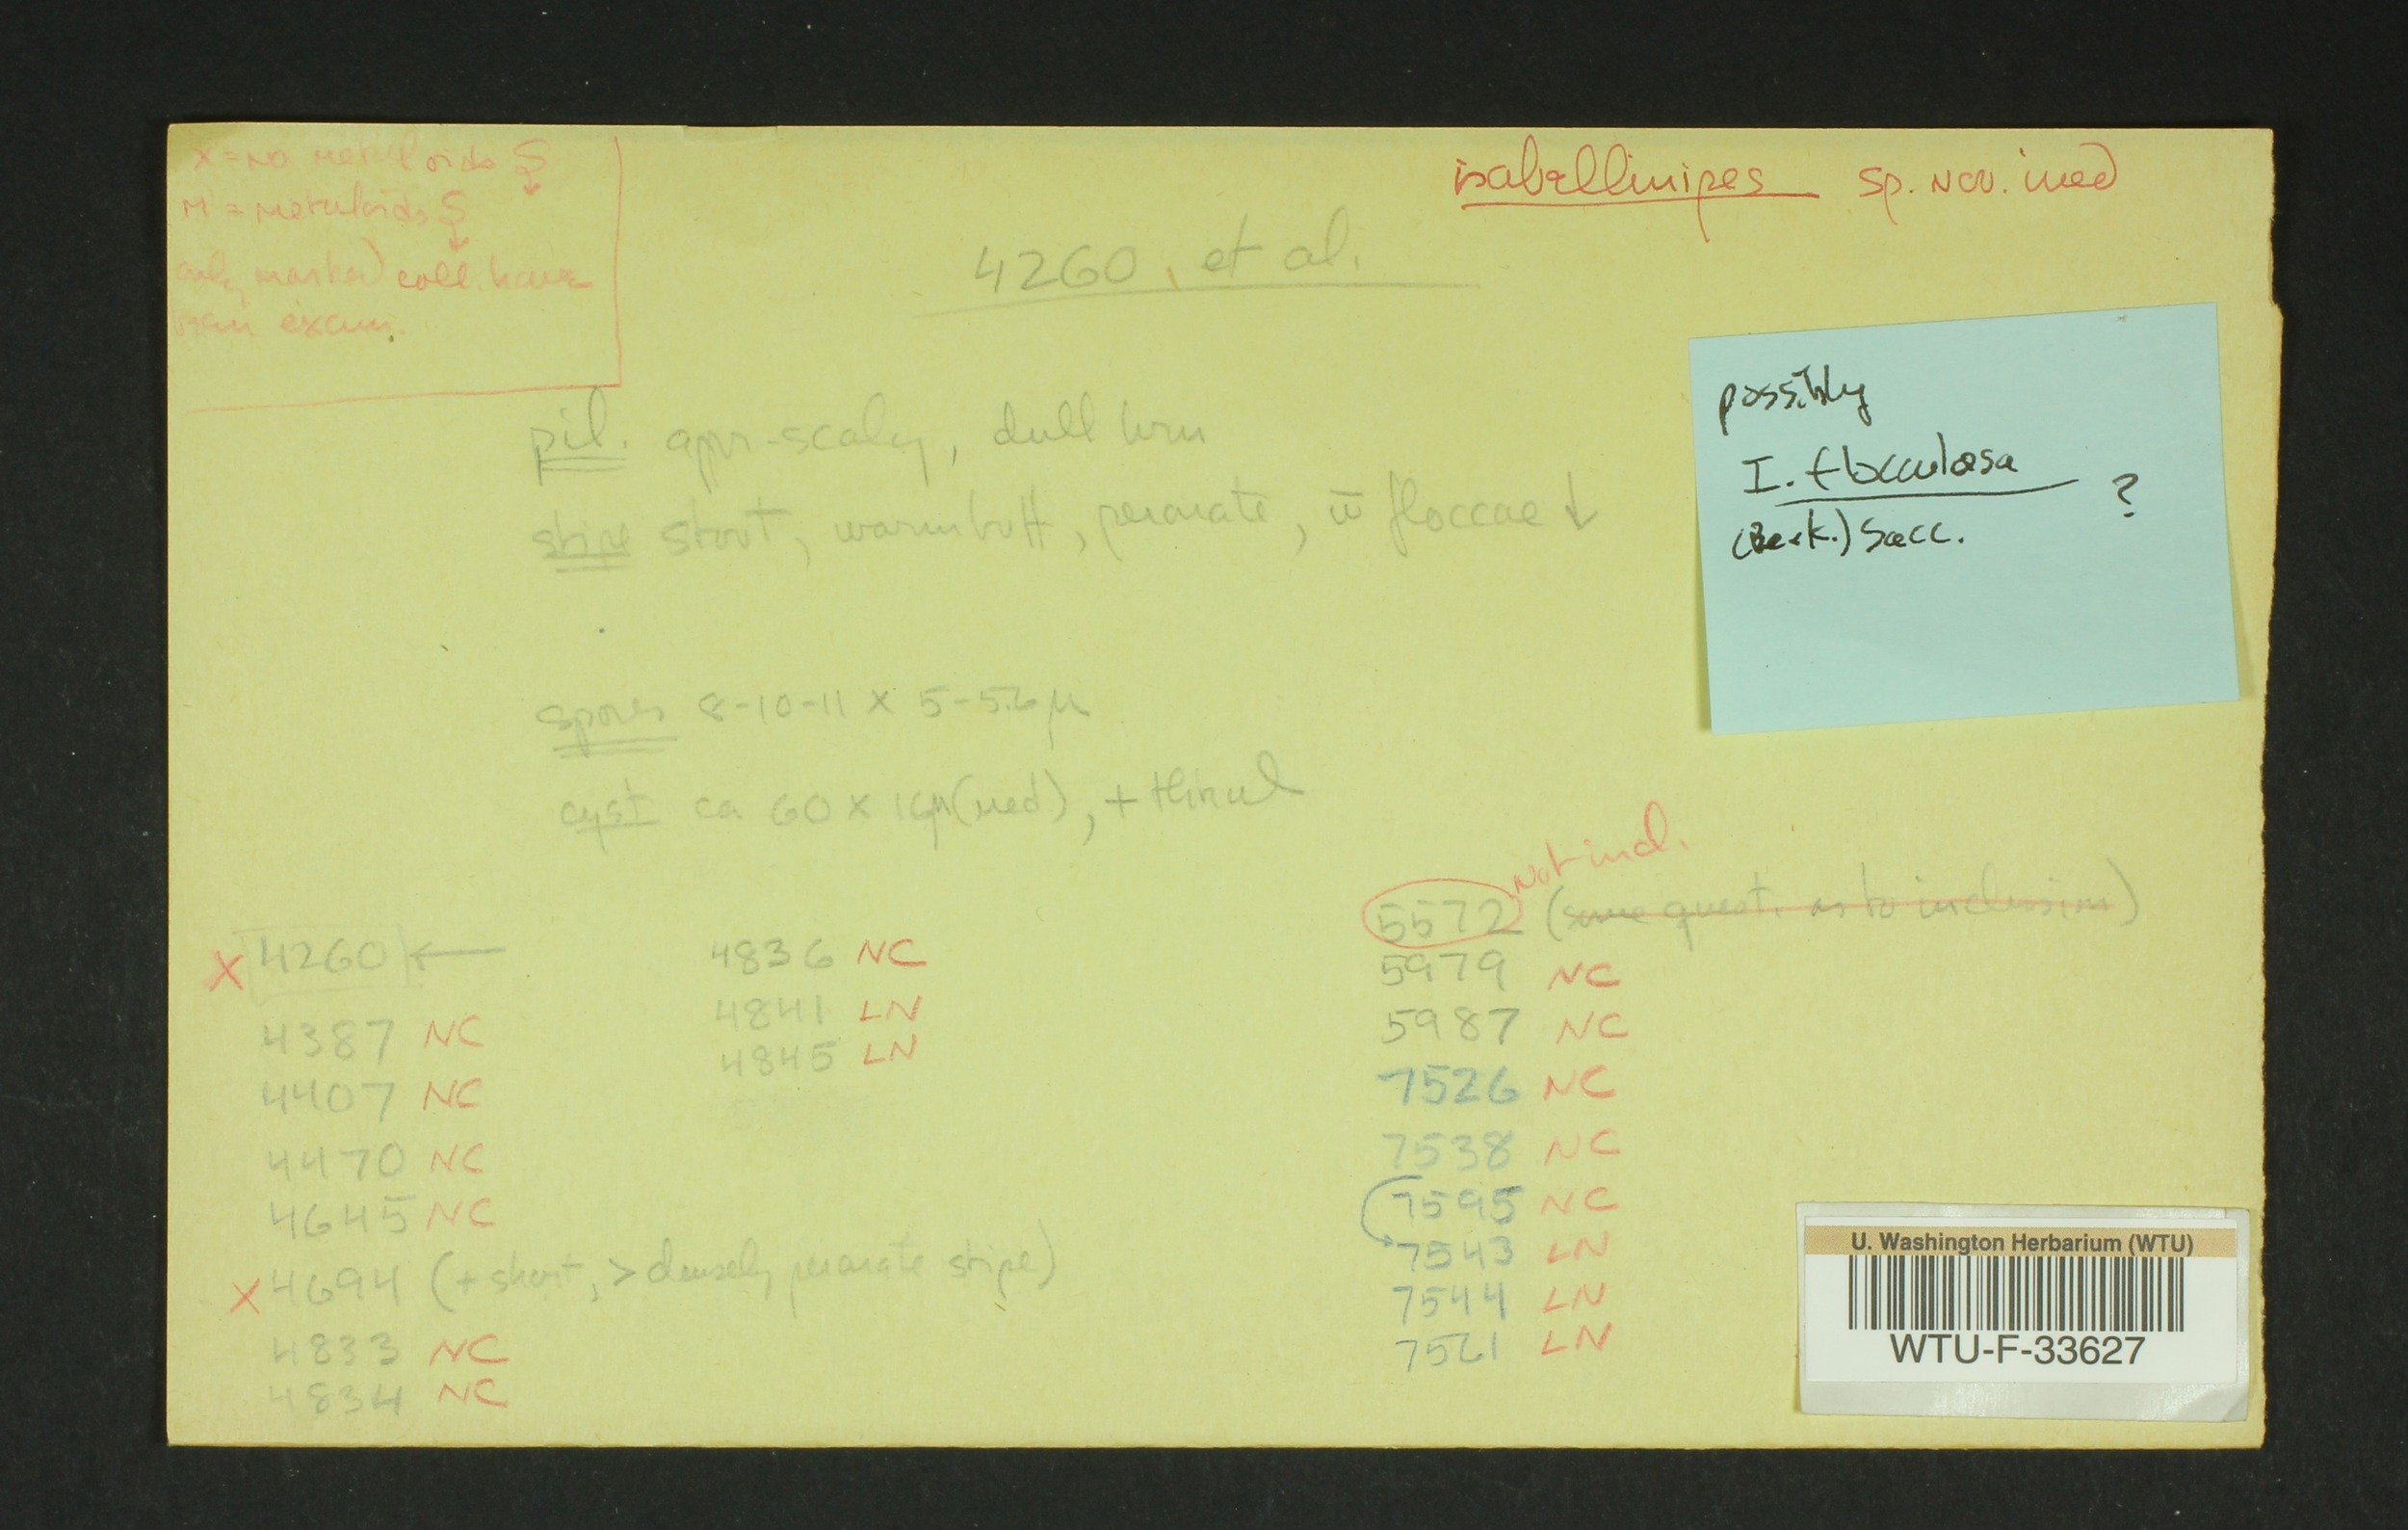 X = no metuloids S ↓
M = metuloids S ↓
only marked coll. have
been exam.
isabellinipes sp. nov. ined
4260, et al.
pil. appr-scaly, dull brn
stipe stout, warm buff, peronate, w̄ floccae ↓
possibly
I. floculosa ?
(Berk.) Sacc.
spores 8-10-11 x 5-5.6 µ
cyst ca 60 x 16µ (med), + thkwal
X 4260 ←
4387 NC
4407 NC
4470 NC
4645 NC
X 4694 (+ short, > densely peronate stipe)
4833 NC
4834 NC
4836 NC
4841 LN
4845 LN
Not incl.
5572 (some quest. as to inclusion)
5979 NC
5987 NC
7526 NC
7538 NC
7595 NC
7543 LN
7544 LN
7521 LN
U. Washington Herbarium (WTU)
WTU-F-33627